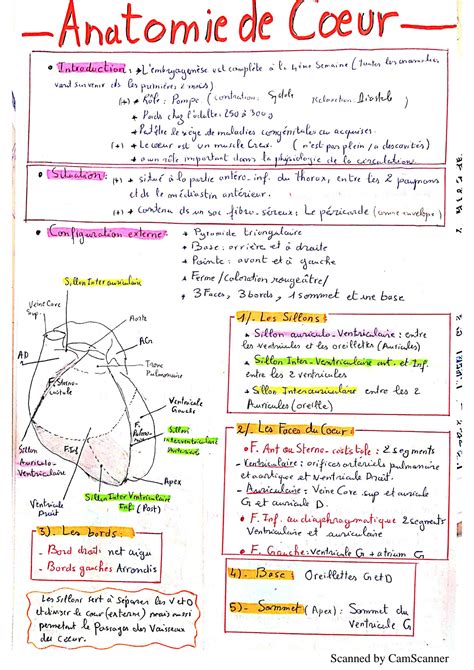 Anatomie de Coeur
• Introduction: → L'embryogenèse est complète à la 4ème Semaine (toutes les anomalies
vard survenir ds les premières 2 mois)
(+) + Rôle: Pompe (contration: Systole Relaxation: Diastole)
+ Poids chez l'adulte: 250 à 300g
+ Peut être le siège de maladies congénitales ou acquises.
(+) + Le coeur est un muscle Creux. (n'est pas plein / a des cavités)
+ a un rôle important dans la physiologie de la circulation.
• Situation: (+) + situé à la partie antéro-inf. du thorax, entre les 2 poumons
et ds le médiastin antérieur.
(+) + Contenu ds un sac fibro-séreux: Le péricarde (comme enveloppe)
• Configuration externe: + Pyramide triangulaire
+ Base: arrière et à droite
+ Pointe: avant et à gauche
+ Ferme / Coloration rougeâtre /
+ 3 Faces, 3 bords, 1 sommet et une base
Sillon Inter auriculaire
Veine Cave
Sup.
Aorte
AG
AD
Tronc
Pulmonaire
F. Sterno-
costale
Ventricule
Gauche
F. Inf
F.
Pulmo
Sillon
interventriculaire
Antérieur
Sillon
Auriculo-
Ventriculaire
Apex
Ventricule
Droit
Sillon Inter Ventriculaire
Inf. (Post)
1/. Les Sillons:
+ Sillon auriculo-Ventriculaire: entre
les ventricules et les oreillettes (Auricules)
+ Sillon Inter-Ventriculaire ant. et Inf.
entre les 2 ventricules
+ Sillon Interauriculaire entre les 2
Auricules (oreille)
2/. Les Faces du Coeur:
• F. Ant ou Sterno-costale: 2 segments
- Ventriculaire: orifices artériels pulmonaire
et aortique et Ventricule Droit.
- Auriculaire: Veine Cave Sup et auricule
G et auricule D.
• F. Inf. ou diaphragmatique 2 segments
Ventriculaire et auriculaire
• F. Gauche: Ventricule G + atrium G
3). Les bords:
- Bord droit: net aigu
- Bords gauches Arrondis
4). Base: Oreillettes G et D
5)- Sommet (Apex): Sommet du
Ventricule G.
Les sillons sert à séparer les V et D
et diviser le coeur (externe) mais aussi
permettent le Passages des Vaisseaux
du Coeur.
Scanned by CamScanner